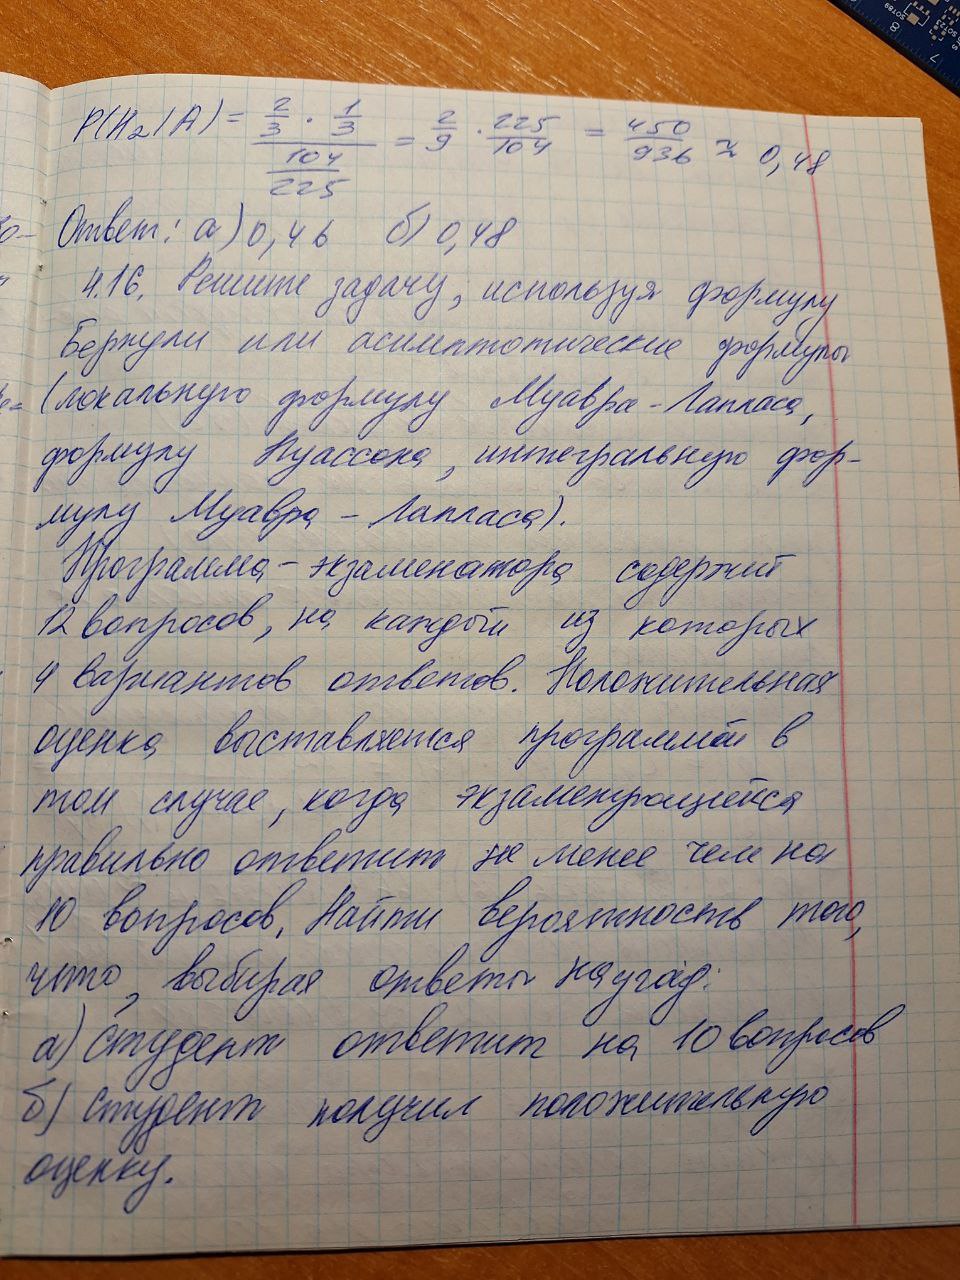 P(H₂/A) = (2/3 · 1/3)/(104/225) = 2/9 · 225/104 = 450/936 ≈ 0,48
Ответ: а) 0,46 б) 0,48
4.16. Решите задачу, используя формулу
Бернули или асимптотические формулы
(локальную формулу Муавра-Лапласа,
формулу Пуассона, интегральную фор-
мулу Муавра - Лапласа).
Программа-экзаменатора содержит
12 вопросов, на каждый из которых
4 вариантов ответов. Положительная
оценка выставляется программой в
том случае, когда экзаменующейся
правильно ответит не менее чем на
10 вопросов. Найти вероятность того,
что, выбирая ответы наугад:
а) Студент ответит на 10 вопросов
б) Студент получил положительную
оценку.